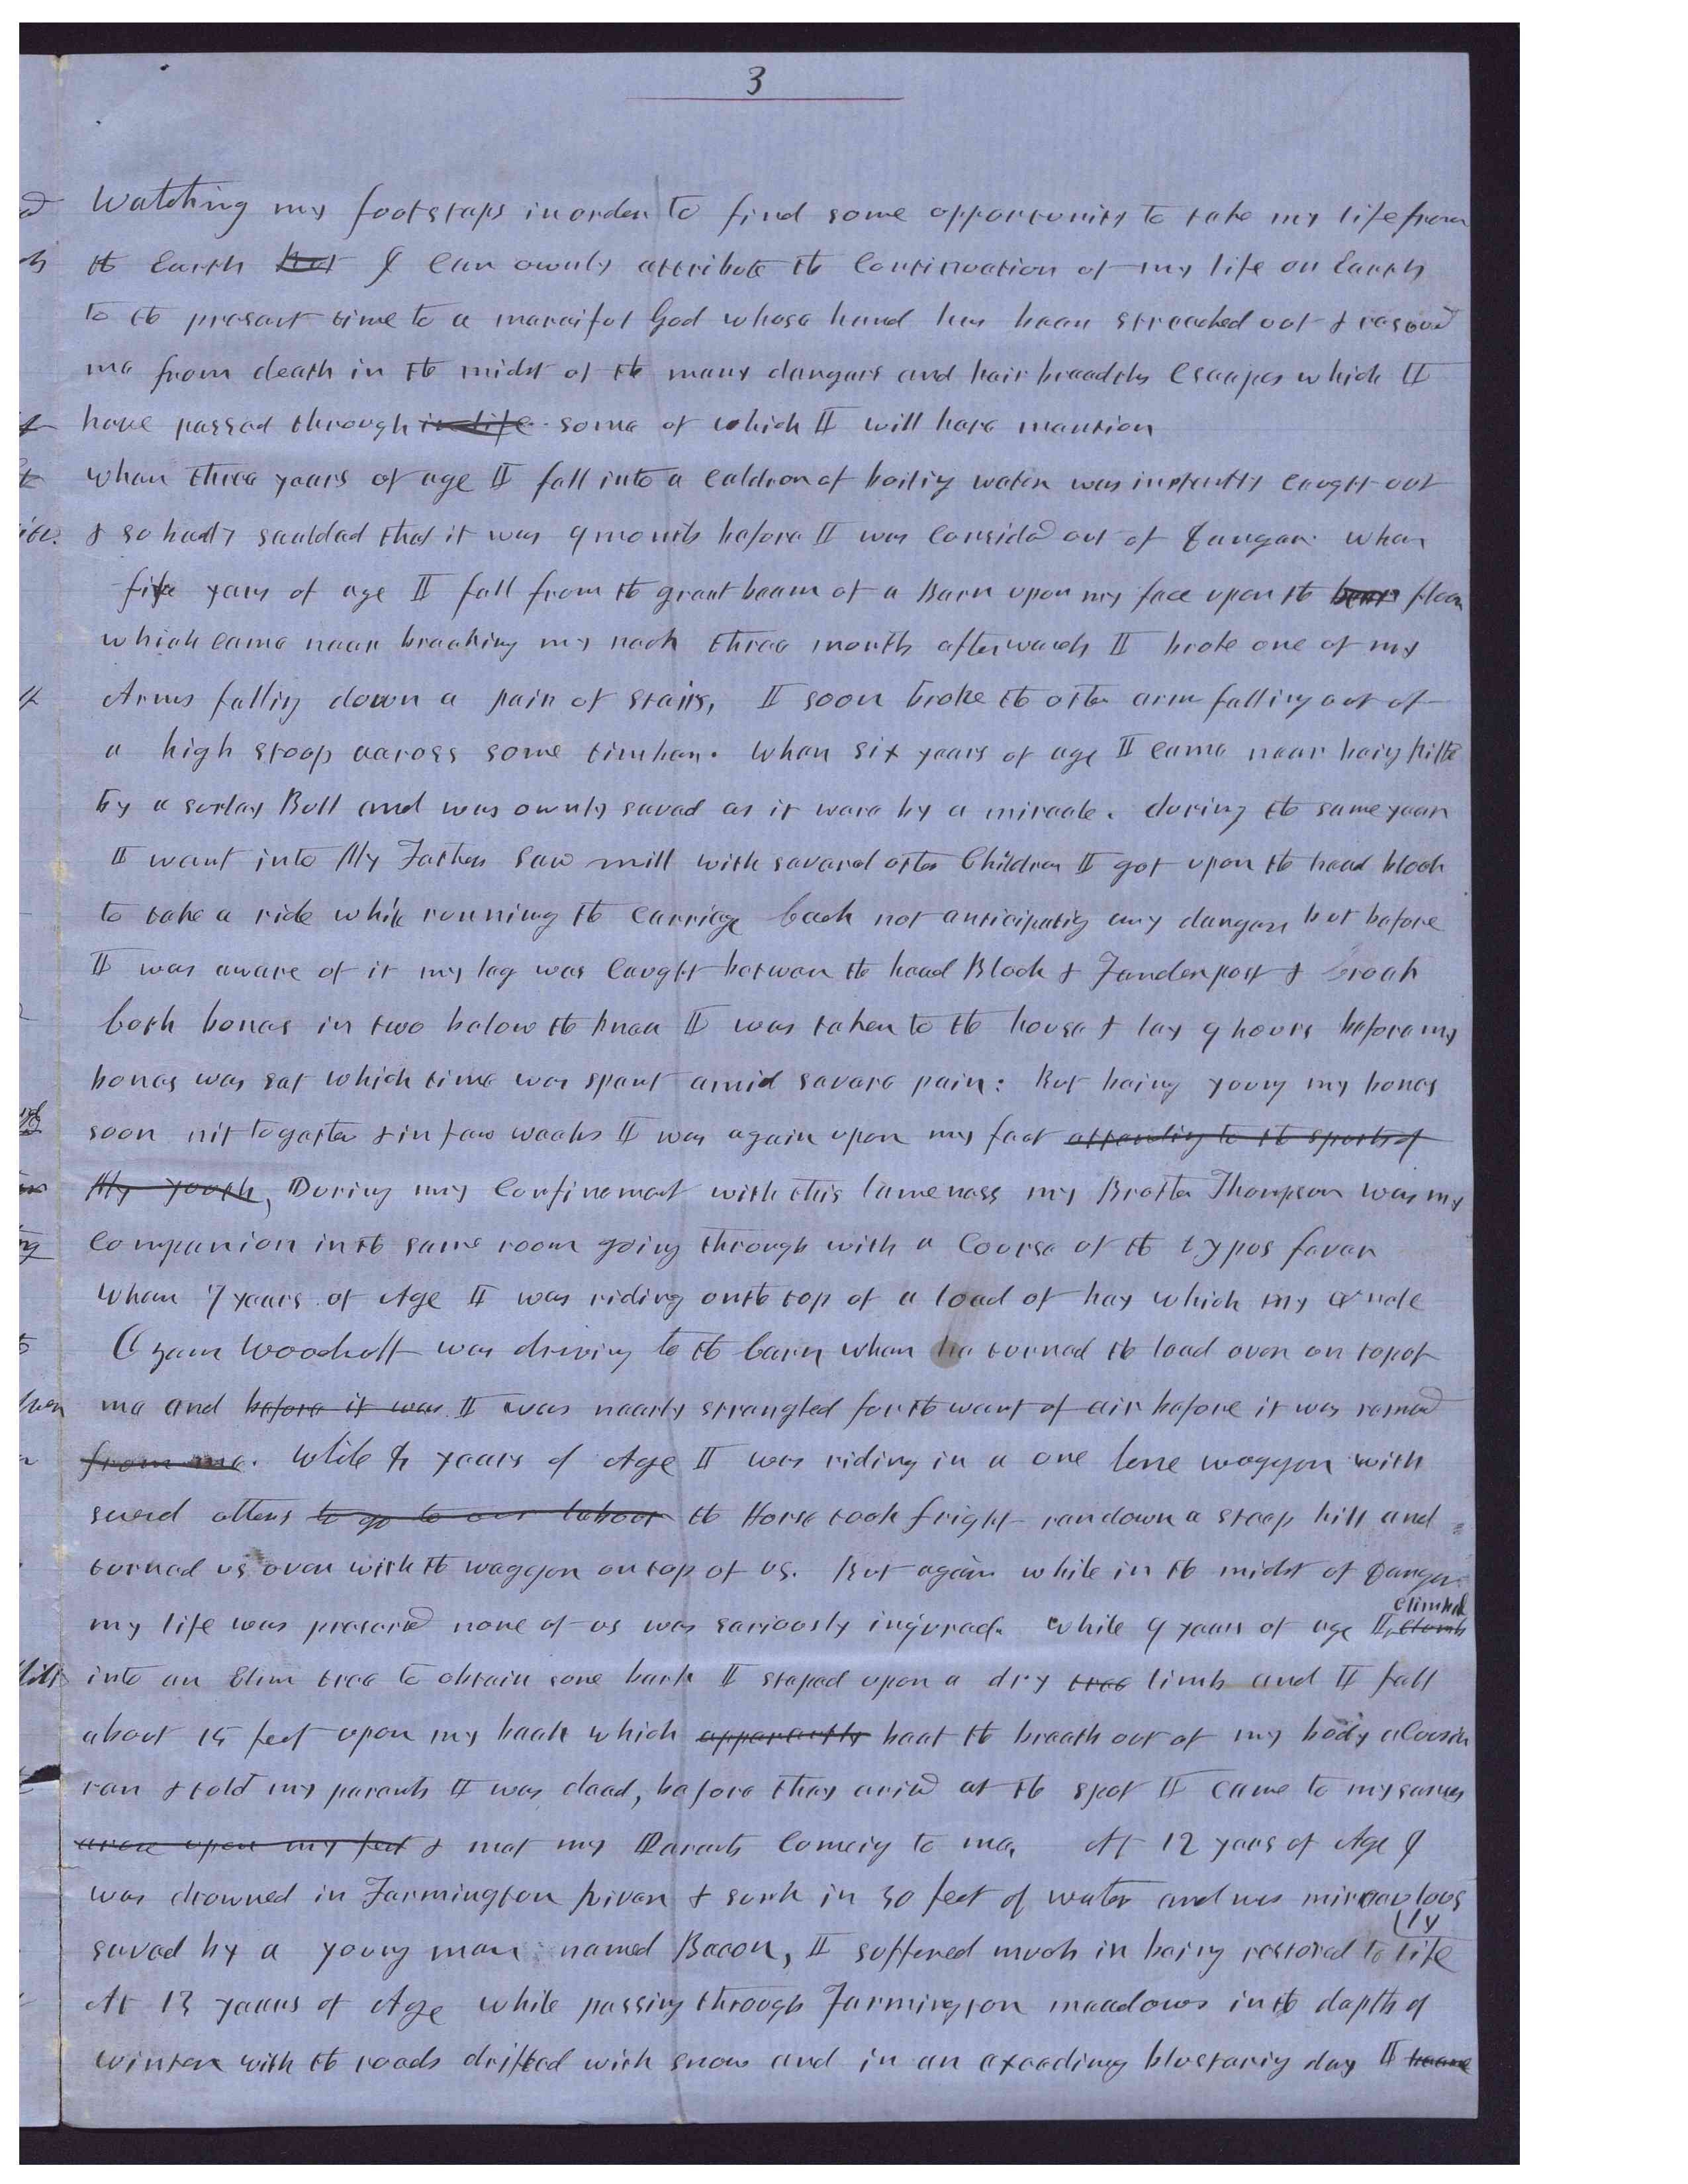 3
Watching my footsteps in order to find some opportunity to take my life from
the Earth ~~But~~ I can ownly attribute the Continuation of my life on Earth
to the present time to a merciful God whose hand has been streached out & rescued
me from death in the midst of the many dangers and hair breadths Escapes which I
have passed through ~~in life~~ some of which I will here mention
when three years of age I fell into a Caldron of boiling water was instantly Caught out
& so badly scalded that it was 9 months before I was Considd out of Danger. when
five years of age I fell from the great beam of a Barn upon my face upon the ~~barn~~ floor
which came near breaking my neck three months afterwards I broke one of my
Arms falling down a pair of stairs, I soon broke the other arm falling out of
a high stoop across some timber. When six years of age I came near being killed
by a surley Bull and was ownly saved as it were by a miracle. during the same year
I went into My Fathers Saw mill with several other Children I got upon the head block
to take a ride while running the Carriage back not anticipating any danger but before
I was aware of it my leg was Caught between the head Block & Fender post & broak
both bones in two below the knee I was taken to the house & lay 9 hours before my
bones was set which time was spent amid severe pain: But being young my bones
soon nit together & in few weeks I was again upon my feet ~~attending to the sports of~~
~~My youth~~, During my Confinement with this lameness my Brother Thompson was my
Companion in the same room going through with a Course of the typos fever
When 7 years of Age I was riding on the top of a load of hay which my uncle
Ozem Woodruff was driving to the barn when he turned the load over on top of
me and ~~before it was~~ I was nearly strangled for the want of air before it was removd
~~from me~~. While 8 years of Age I was riding in a one horse waggon with
several others ~~to go to our labour~~ the Horse took fright ran down a steep hill and
turned us over with the waggon on top of us. But again while in the midst of Danger
my life was preservd none of us was seriously injured. While 9 years of age I ~~clomb~~ Climbed
into an Elm tree to obtain some bark I steped upon a dry ~~tree~~ limb and I fell
about 15 feet upon my back which ~~apparently~~ beat the breath out of my body a Cousin
ran & told my parents I was dead, before they arivd at the spot I came to my senses
~~arose upon my feet~~ & met my Parents Comeing to me, At 12 years of Age I
was drowned in Farmington river & sunk in 30 feet of water and was miraculous
ly
saved by a young man named Bacon, I suffered much in being restored to life
At 13 years of Age while passing through Farmington meadows in the depth of
winter with the roads drifted with snow and in an exeedingly blustering day I ~~became~~